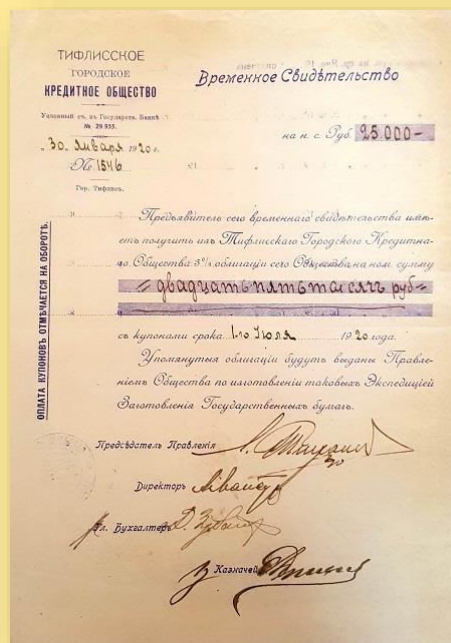 ТИФЛИССКОЕ
ГОРОДСКОЕ
КРЕДИТНОЕ ОБЩЕСТВО
Условный сч. въ Государств. Банкѣ
№ 29.955.
30 Января 1920 г.
№ 1546
Гор. Тифлисъ.
Временное Свидѣтельство
на н. с. Руб. 25.000-
Предъявитель сего временнаго свидѣтельства имѣ-
етъ получить изъ Тифлисскаго Городского Кредитна-
го Общества 5% облигаціи сего Общества на ном. сумму
двадцать пять тысячъ руб
съ купонами срока 1-го Іюля 1920 года.
Упомянутыя облигаціи будутъ выданы Правле-
ніемъ Общества по изготовленіи таковыхъ Экспедиціей
Заготовленія Государственныхъ бумагъ.
Предсѣдатель Правленія
Директоръ
Гл. Бухгалтеръ
Казначей
ОПЛАТА КУПОНОВЪ ОТМѢЧАЕТСЯ НА ОБОРОТѢ.